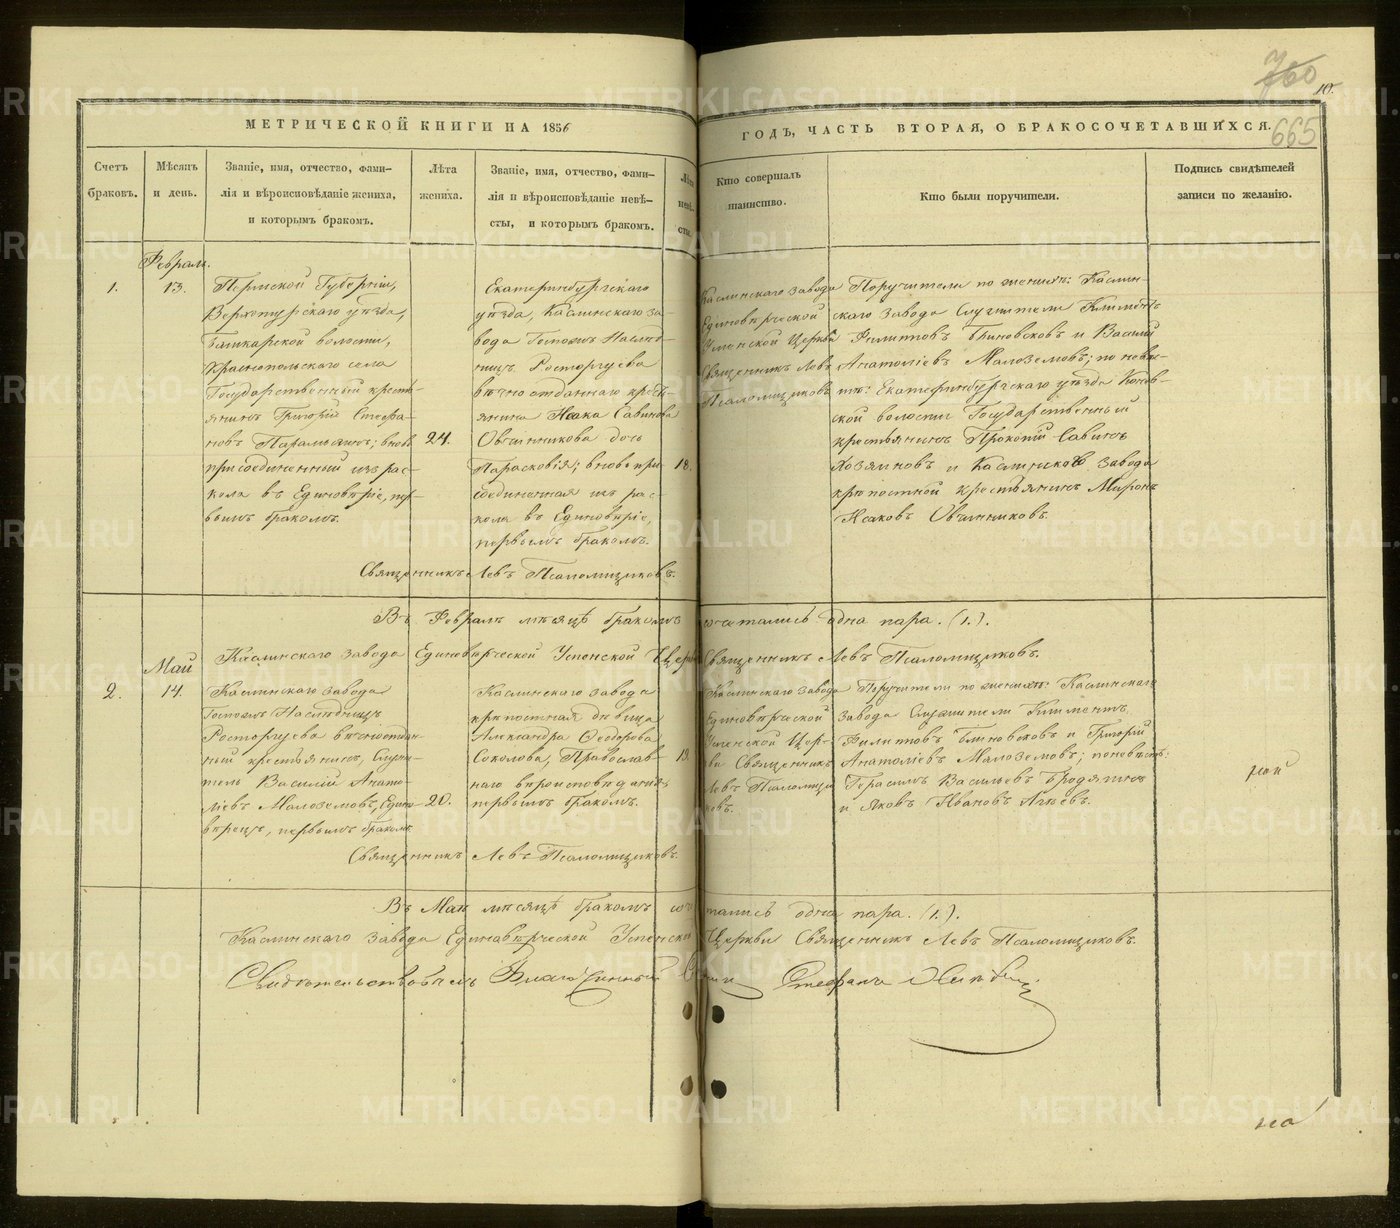 760
10.
665
МЕТРИЧЕСКОЙ КНИГИ НА 1856
ГОДЪ, ЧАСТЬ ВТОРАЯ, О БРАКОСОЧЕТАВШИХСЯ.
Счетъ
браковъ.
Мѣсяцъ
и день.
Званіе, имя, отчество, фами-
лія и вѣроисповѣданіе жениха,
и которымъ бракомъ.
Лѣта
жениха.
Званіе, имя, отчество, фами-
лія и вѣроисповѣданіе невѣ-
сты, и которымъ бракомъ.
Лѣта
невѣ-
сты.
Кто совершалъ
таинство.
Кто были поручители.
Подпись свидѣтелей
записи по желанію.
1.
Февраль.
13.
Пермской Губерніи,
Верхотурскаго уѣзда,
Башкарской волости,
Краснопольскаго села
Государственный кресть-
янинъ Григорій Стефа-
новъ Паральянъ; вновь
присоединенный изъ рас-
кола въ Единовѣріе, пер-
вымъ бракомъ.
24.
Екатеринбургскаго
уѣзда, Каслинскаго за-
вода Господъ Наслѣд-
ницъ Расторгуева
вѣчноотданнаго кресть-
янина Исака Савинова
Овчинникова дочь
Парасковія; вновь при-
соединенная изъ рас-
кола въ Единовѣріе,
первымъ бракомъ.
18.
Каслинскаго завода
Единовѣрческой
Успенской Церкви
Священникъ Левъ
Псаломщиковъ
Поручители по женихѣ: Каслин-
скаго завода Служители Климентъ
Филиповъ Блиновсковъ и Василій
Анатоліевъ Малоземовъ; по невѣ-
стѣ: Екатеринбургскаго уѣзда
ской волости Государственный
крестьянинъ Прокопій Савинъ
Хозяиновъ и Каслинскаго завода
крѣпостной крестьянинъ Миронъ
Исаковъ Овчинниковъ.
Священникъ Левъ Псаломщиковъ.
Въ Февралѣ мѣсяцѣ бракомъ сочетались одна пара. (1.).
Каслинскаго завода Единовѣрческой Успенской Церкви Священникъ Левъ Псаломщиковъ.
2.
Май
14.
Каслинскаго завода
Господъ Наслѣдницъ
Расторгуева вѣчноотдан-
ный крестьянинъ, Служи-
тель Василій Анато-
ліевъ Малоземовъ, Едино-
вѣрецъ, первымъ бракомъ
20.
Каслинскаго завода
крѣпостная дѣвица
Александра Ѳеодорова
Соколова, Православ-
наго вѣроисповѣданія,
первымъ бракомъ.
19.
Каслинскаго завода
Единовѣрческой
Успенской Цер-
кви Священникъ
Левъ Псаломщи-
ковъ.
Поручители по женихѣ: Каслинскаго
завода Служители Климентъ
Филиповъ Блиновсковъ и Григорій
Анатоліевъ Малоземовъ; по невѣстѣ:
Герасимъ Васильевъ Бродягинъ
и Яковъ Ивановъ Агѣевъ.
Священникъ Левъ Псаломщиковъ.
Въ Маѣ мѣсяцѣ бракомъ сочетались одна пара. (1.).
Каслинскаго завода Единовѣрческой Успенской Церкви Священникъ Левъ Псаломщиковъ.
Свидѣтельствовалъ Благочинный Стефанъ
METRIKI.GASO-URAL.RU